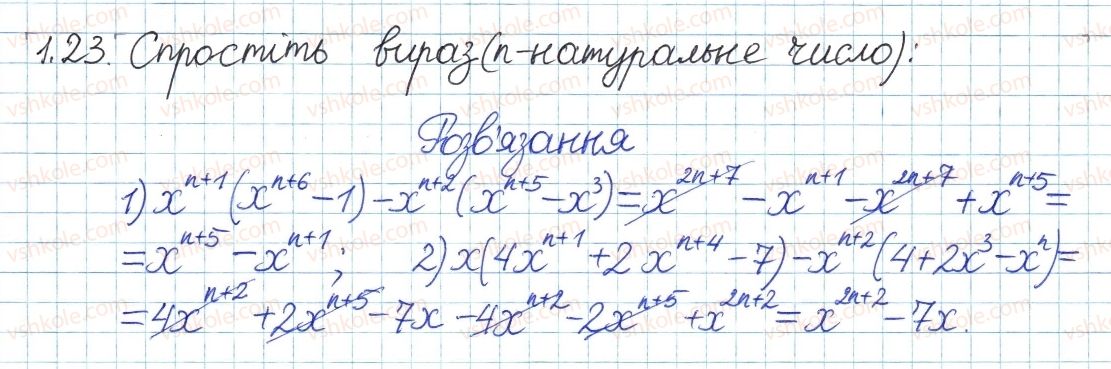 1.23. Спростіть вираз (n-натуральне число):
Розв'язання
1) x^{n+1} (x^{n+6} - 1) - x^{n+2} (x^{n+5} - x^3) = x^{2n+7} - x^{n+1} - x^{2n+7} + x^{n+5} =
= x^{n+5} - x^{n+1}; 2) x(4x^{n+1} + 2x^{n+4} - 7) - x^{n+2} (4 + 2x^3 - x^n) =
= 4x^{n+2} + 2x^{n+5} - 7x - 4x^{n+2} - 2x^{n+5} + x^{2n+2} = x^{2n+2} - 7x.